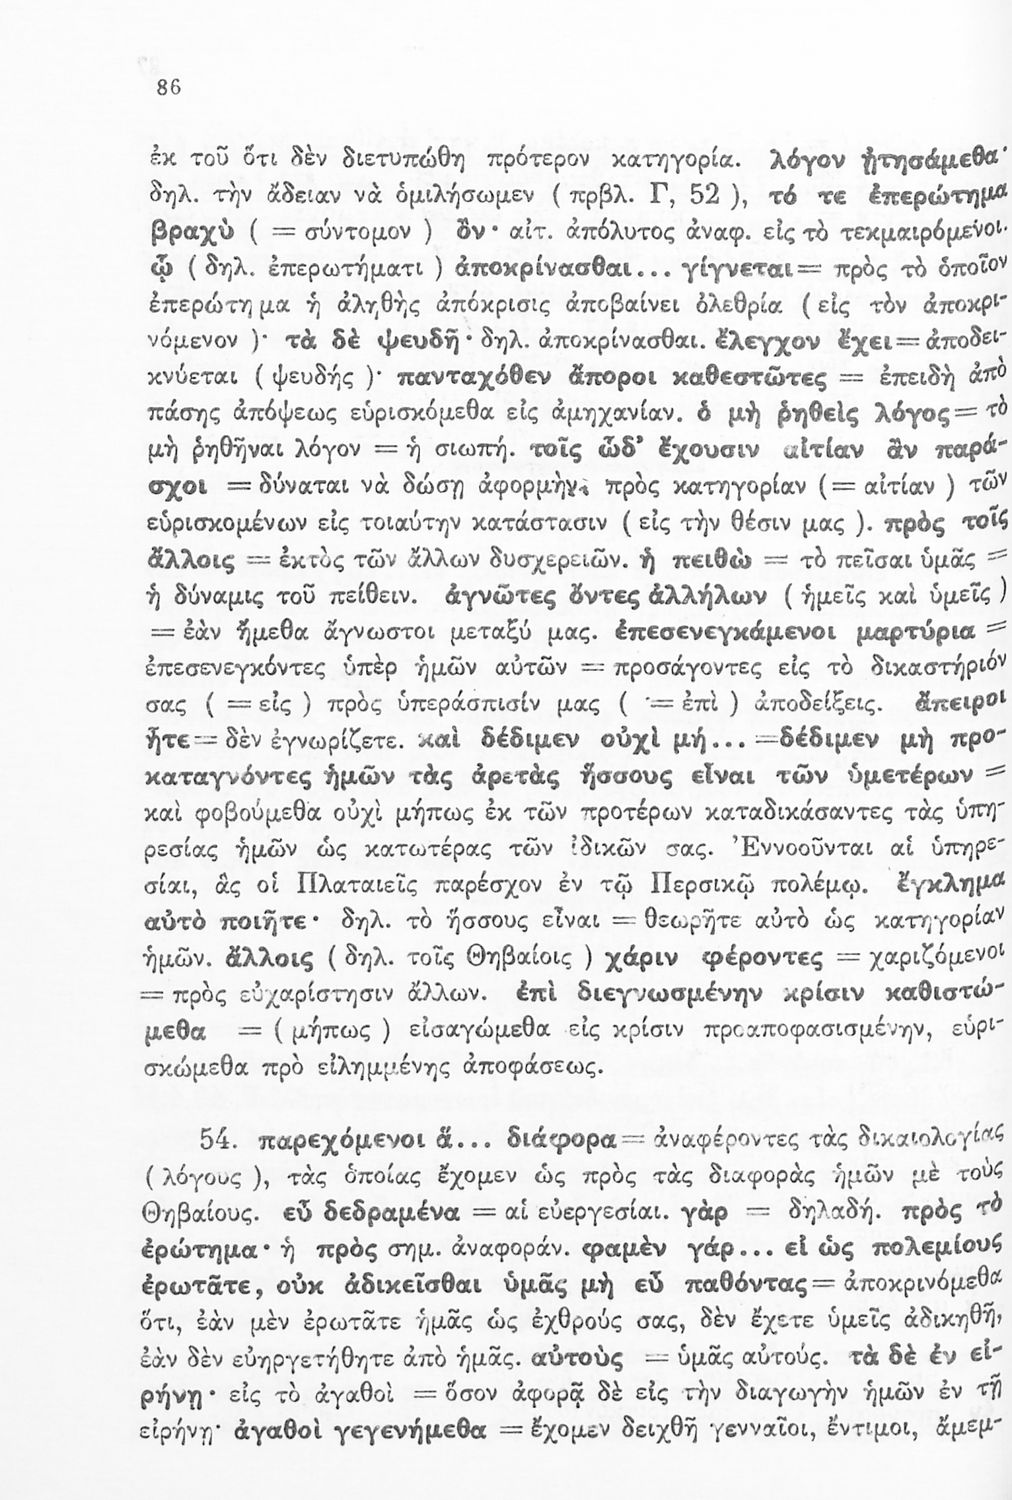 86
ἐκ τοῦ ὅτι δὲν διετυπώθη πρότερον κατηγορία. λόγον ᾐτησάμεθα·
δηλ. τὴν ἄδειαν νὰ ὁμιλήσωμεν ( πρβλ. Γ, 52 ), τό τε ἐπερώτημα
βραχὺ ( = σύντομον ) ὂν · αἰτ. ἀπόλυτος ἀναφ. εἰς τὸ τεκμαιρόμενοι·
ᾧ ( δηλ. ἐπερωτήματι ) ἀποκρίνασθαι... γίγνεται = πρὸς τὸ ὁποῖον
ἐπερώτημα ἡ ἀληθὴς ἀπόκρισις ἀποβαίνει ὀλεθρία ( εἰς τὸν ἀποκρι-
νόμενον )· τὰ δὲ ψευδῆ · δηλ. ἀποκρίνασθαι. ἔλεγχον ἔχει = ἀποδει-
κνύεται ( ψευδής )· πανταχόθεν ἄποροι καθεστῶτες = ἐπειδὴ ἀπὸ
πάσης ἀπόψεως εὑρισκόμεθα εἰς ἀμηχανίαν. ὁ μὴ ῥηθεὶς λόγος = τὸ
μὴ ῥηθῆναι λόγον = ἡ σιωπή. τοῖς ὧδ' ἔχουσιν αἰτίαν ἂν παρά-
σχοι = δύναται νὰ δώσῃ ἀφορμὴν πρὸς κατηγορίαν ( = αἰτίαν ) τῶν
εὑρισκομένων εἰς τοιαύτην κατάστασιν ( εἰς τὴν θέσιν μας ). πρὸς τοῖς
ἄλλοις = ἐκτὸς τῶν ἄλλων δυσχερειῶν. ἡ πειθὼ = τὸ πεῖσαι ὑμᾶς =
ἡ δύναμις τοῦ πείθειν. ἀγνῶτες ὄντες ἀλλήλων ( ἡμεῖς καὶ ὑμεῖς )
= ἐὰν ἤμεθα ἄγνωστοι μεταξύ μας. ἐπεσενεγκάμενοι μαρτύρια =
ἐπεσενεγκόντες ὑπὲρ ἡμῶν αὐτῶν = προσάγοντες εἰς τὸ δικαστήριόν
σας ( = εἰς ) πρὸς ὑπεράσπισίν μας ( = ἐπὶ ) ἀποδείξεις. ἄπειροι
ἦτε = δὲν ἐγνωρίζετε. καὶ δέδιμεν οὐχὶ μή... = δέδιμεν μὴ προ-
καταγνόντες ἡμῶν τὰς ἀρετὰς ἥσσους εἶναι τῶν ὑμετέρων =
καὶ φοβούμεθα οὐχὶ μήπως ἐκ τῶν προτέρων καταδικάσαντες τὰς ὑπη-
ρεσίας ἡμῶν ὡς κατωτέρας τῶν ἰδικῶν σας. Ἐννοοῦνται αἱ ὑπηρε-
σίαι, ἃς οἱ Πλαταιεῖς παρέσχον ἐν τῷ Περσικῷ πολέμῳ. ἔγκλημα
αὐτὸ ποιῆτε · δηλ. τὸ ἥσσους εἶναι = θεωρῆτε αὐτὸ ὡς κατηγορίαν
ἡμῶν. ἄλλοις ( δηλ. τοῖς Θηβαίοις ) χάριν φέροντες = χαριζόμενοι
= πρὸς εὐχαρίστησιν ἄλλων. ἐπὶ διεγνωσμένην κρίσιν καθιστώ-
μεθα = ( μήπως ) εἰσαγώμεθα εἰς κρίσιν προαποφασισμένην, εὑρι-
σκώμεθα πρὸ εἰλημμένης ἀποφάσεως.
54. παρεχόμενοι ἃ... διάφορα = ἀναφέροντες τὰς δικαιολογίας
( λόγους ), τὰς ὁποίας ἔχομεν ὡς πρὸς τὰς διαφορὰς ἡμῶν μὲ τοὺς
Θηβαίους. εὖ δεδραμένα = αἱ εὐεργεσίαι. γὰρ = δηλαδή. πρὸς τὸ
ἐρώτημα · ἡ πρὸς σημ. ἀναφοράν. φαμὲν γάρ... εἰ ὡς πολεμίους
ἐρωτᾶτε, οὐκ ἀδικεῖσθαι ὑμᾶς μὴ εὖ παθόντας = ἀποκρινόμεθα
ὅτι, ἐὰν μὲν ἐρωτᾶτε ἡμᾶς ὡς ἐχθρούς σας, δὲν ἔχετε ὑμεῖς ἀδικηθῆ,
ἐὰν δὲν εὐηργετήθητε ἀπὸ ἡμᾶς. αὐτοὺς = ὑμᾶς αὐτούς. τὰ δὲ ἐν εἰ-
ρήνῃ · εἰς τὸ ἀγαθοὶ = ὅσον ἀφορᾷ δὲ εἰς τὴν διαγωγὴν ἡμῶν ἐν τῇ
εἰρήνῃ· ἀγαθοὶ γεγενήμεθα = ἔχομεν δειχθῆ γενναῖοι, ἔντιμοι, ἄμεμ-